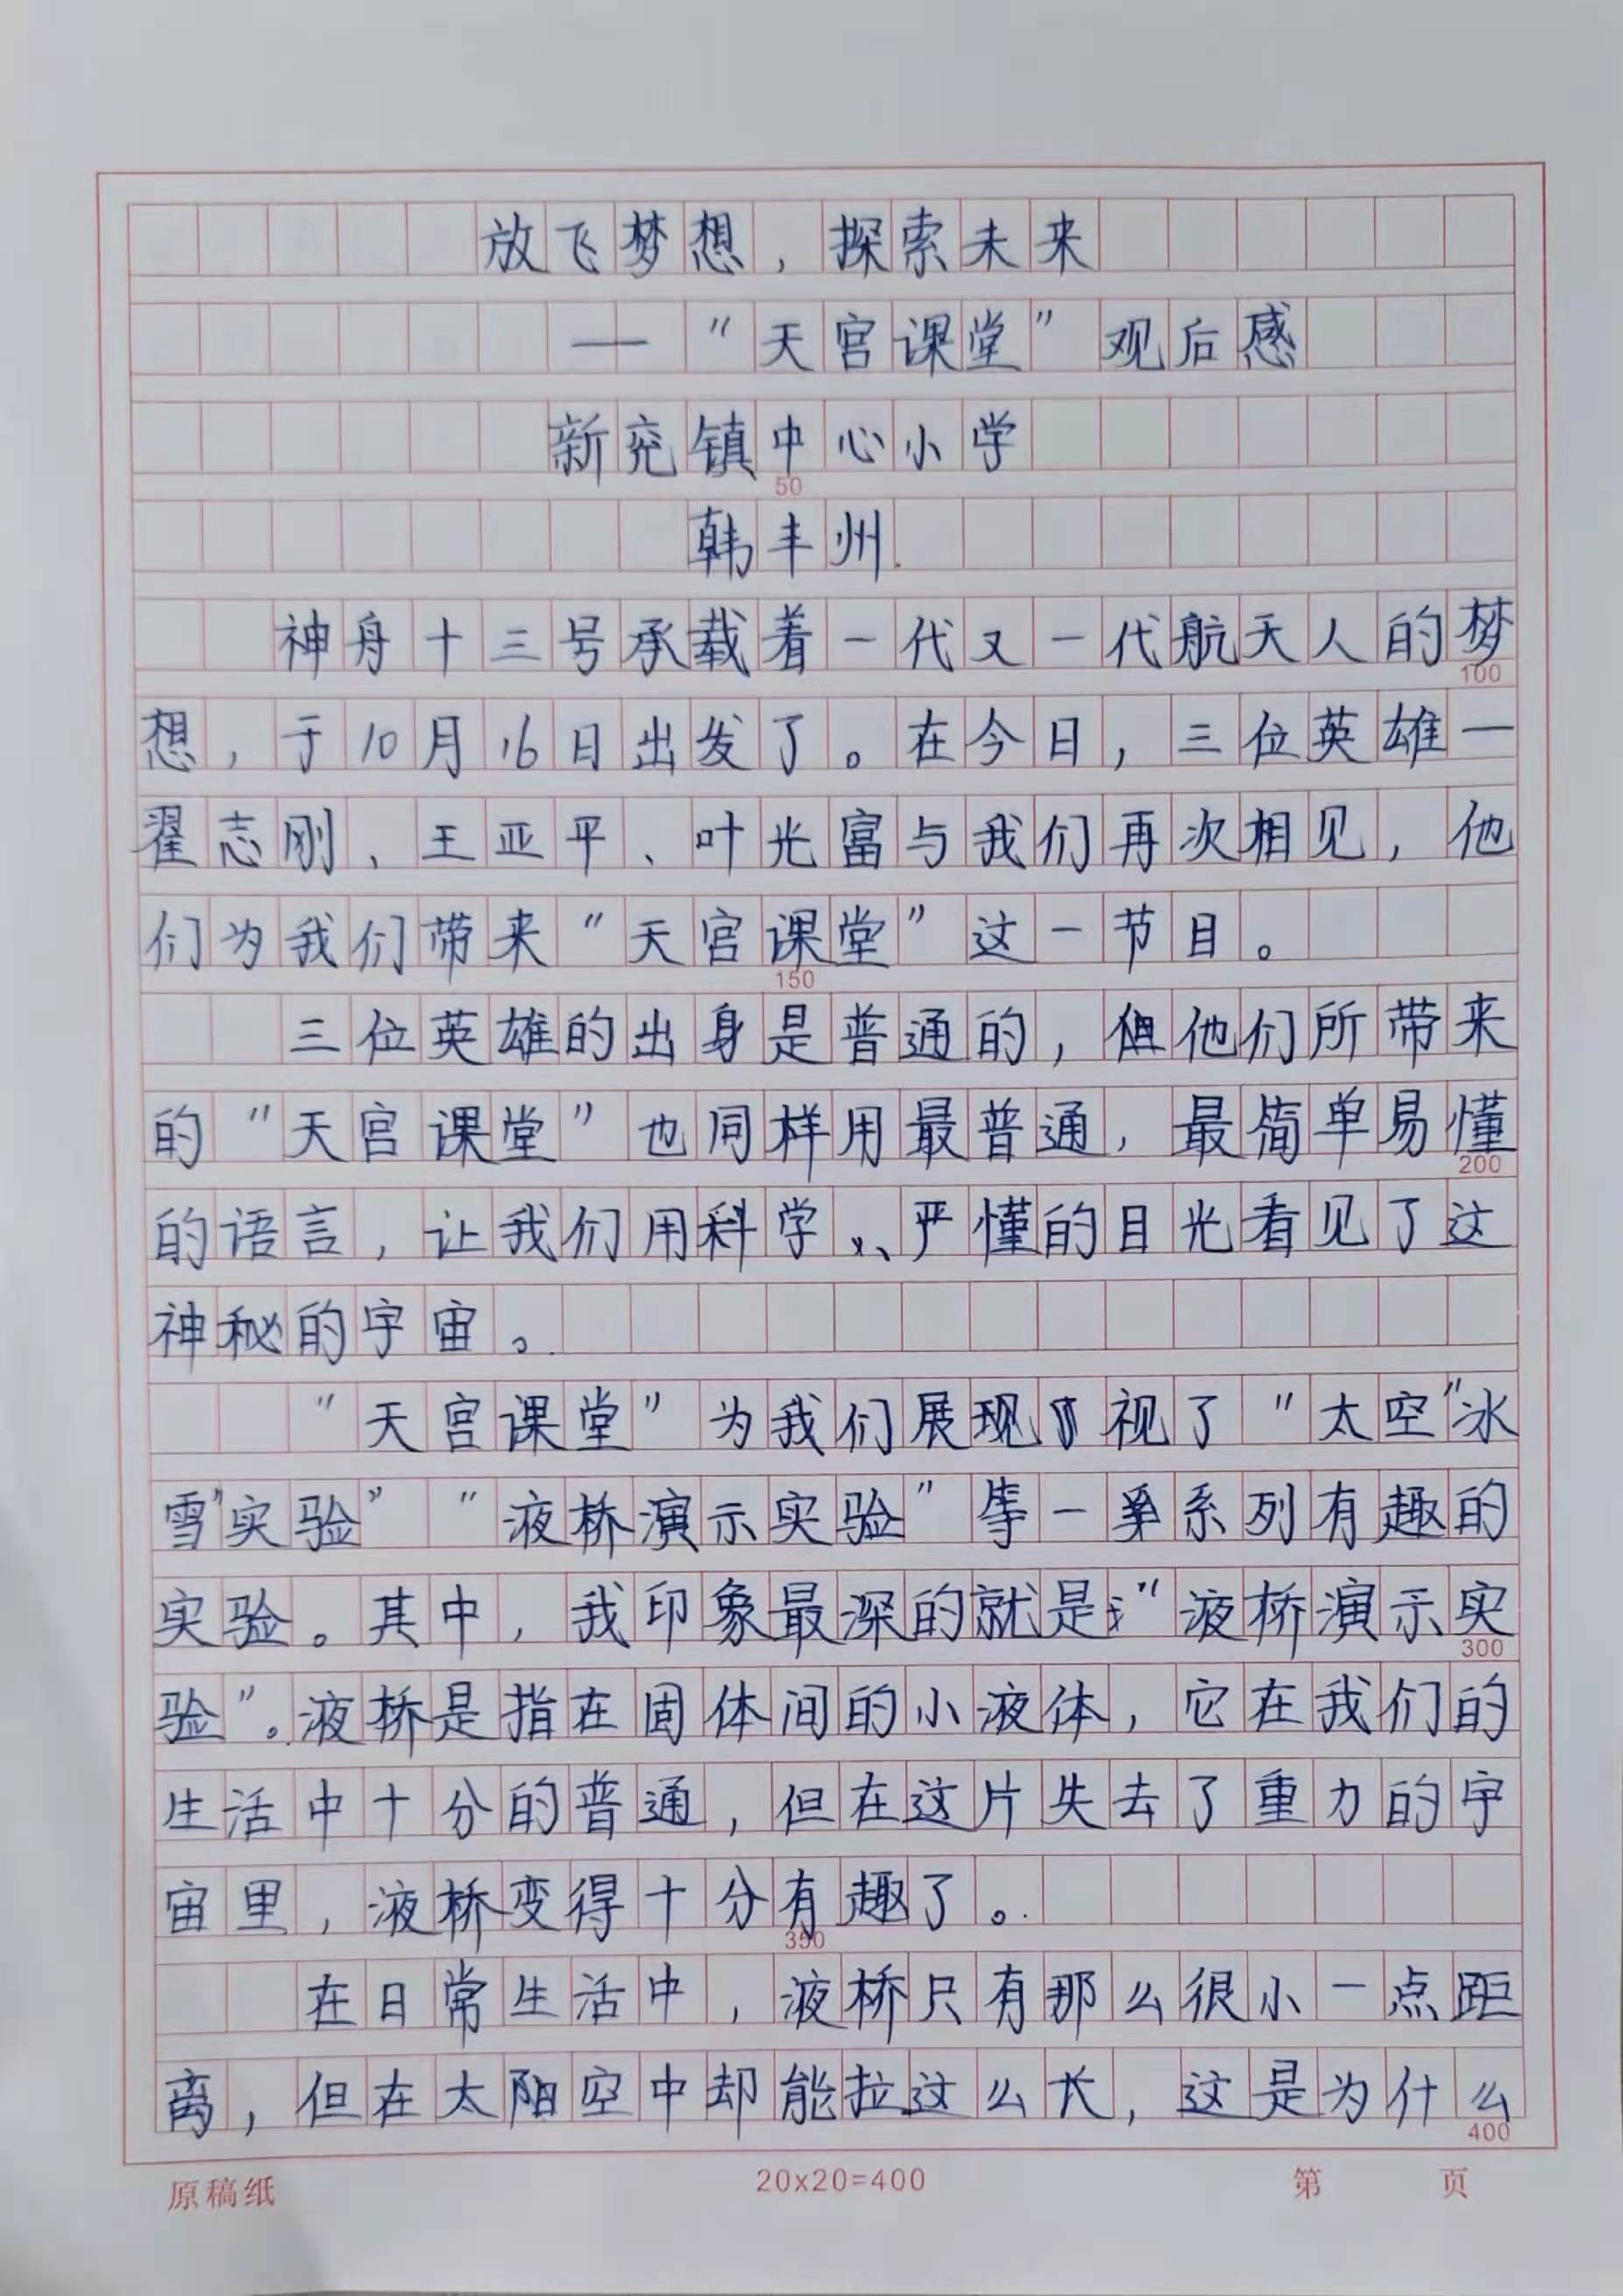 放飞梦想，探索未来
——“天宫课堂”观后感
新兖镇中心小学
50
韩丰州
神舟十三号承载着一代又一代航天人的梦
100
想，于10月16日出发了。在今日，三位英雄—
翟志刚、王亚平、叶光富与我们再次相见，他
们为我们带来“天宫课堂”这一节目。
150
三位英雄的出身是普通的，但他们所带来
的“天宫课堂”也同样用最普通，最简单易懂
200
的语言，让我们用科学、严懂的目光看见了这
神秘的宇宙。
“天宫课堂”为我们展现了视了“太空“冰
雪”实验”“液桥演示实验”等一系列有趣的
实验。其中，我印象最深的就是“液桥演示实
300
验”。液桥是指在固体间的小液体，它在我们的
生活中十分的普通，但在这片失去了重力的宇
宙里，液桥变得十分有趣了。
350
在日常生活中，液桥只有那么很小一点距
离，但在太阳空中却能拉这么长，这是为什么
400
原稿纸 20x20=400 第 页